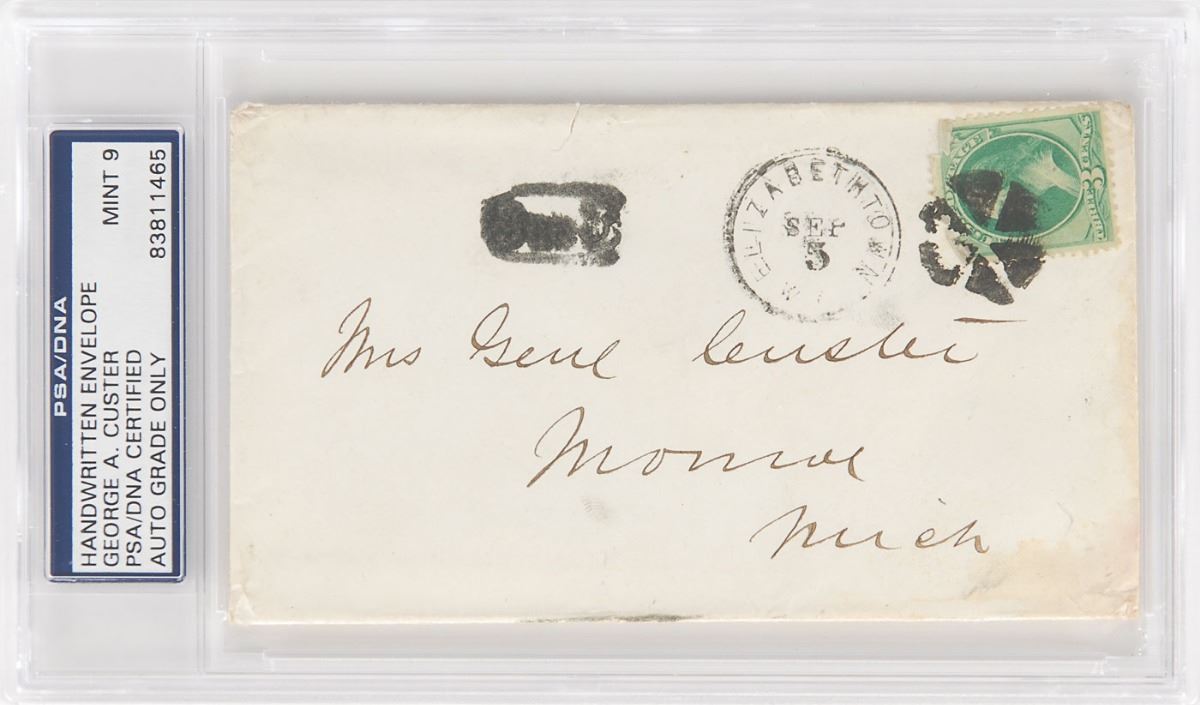 PSA/DNA
HANDWRITTEN ENVELOPE
GEORGE A. CUSTER
PSA/DNA CERTIFIED
AUTO GRADE ONLY
MINT 9
83811465
ELIZABETHTOWN
SEP
5
Mrs Genl Custer
Monroe
Mich